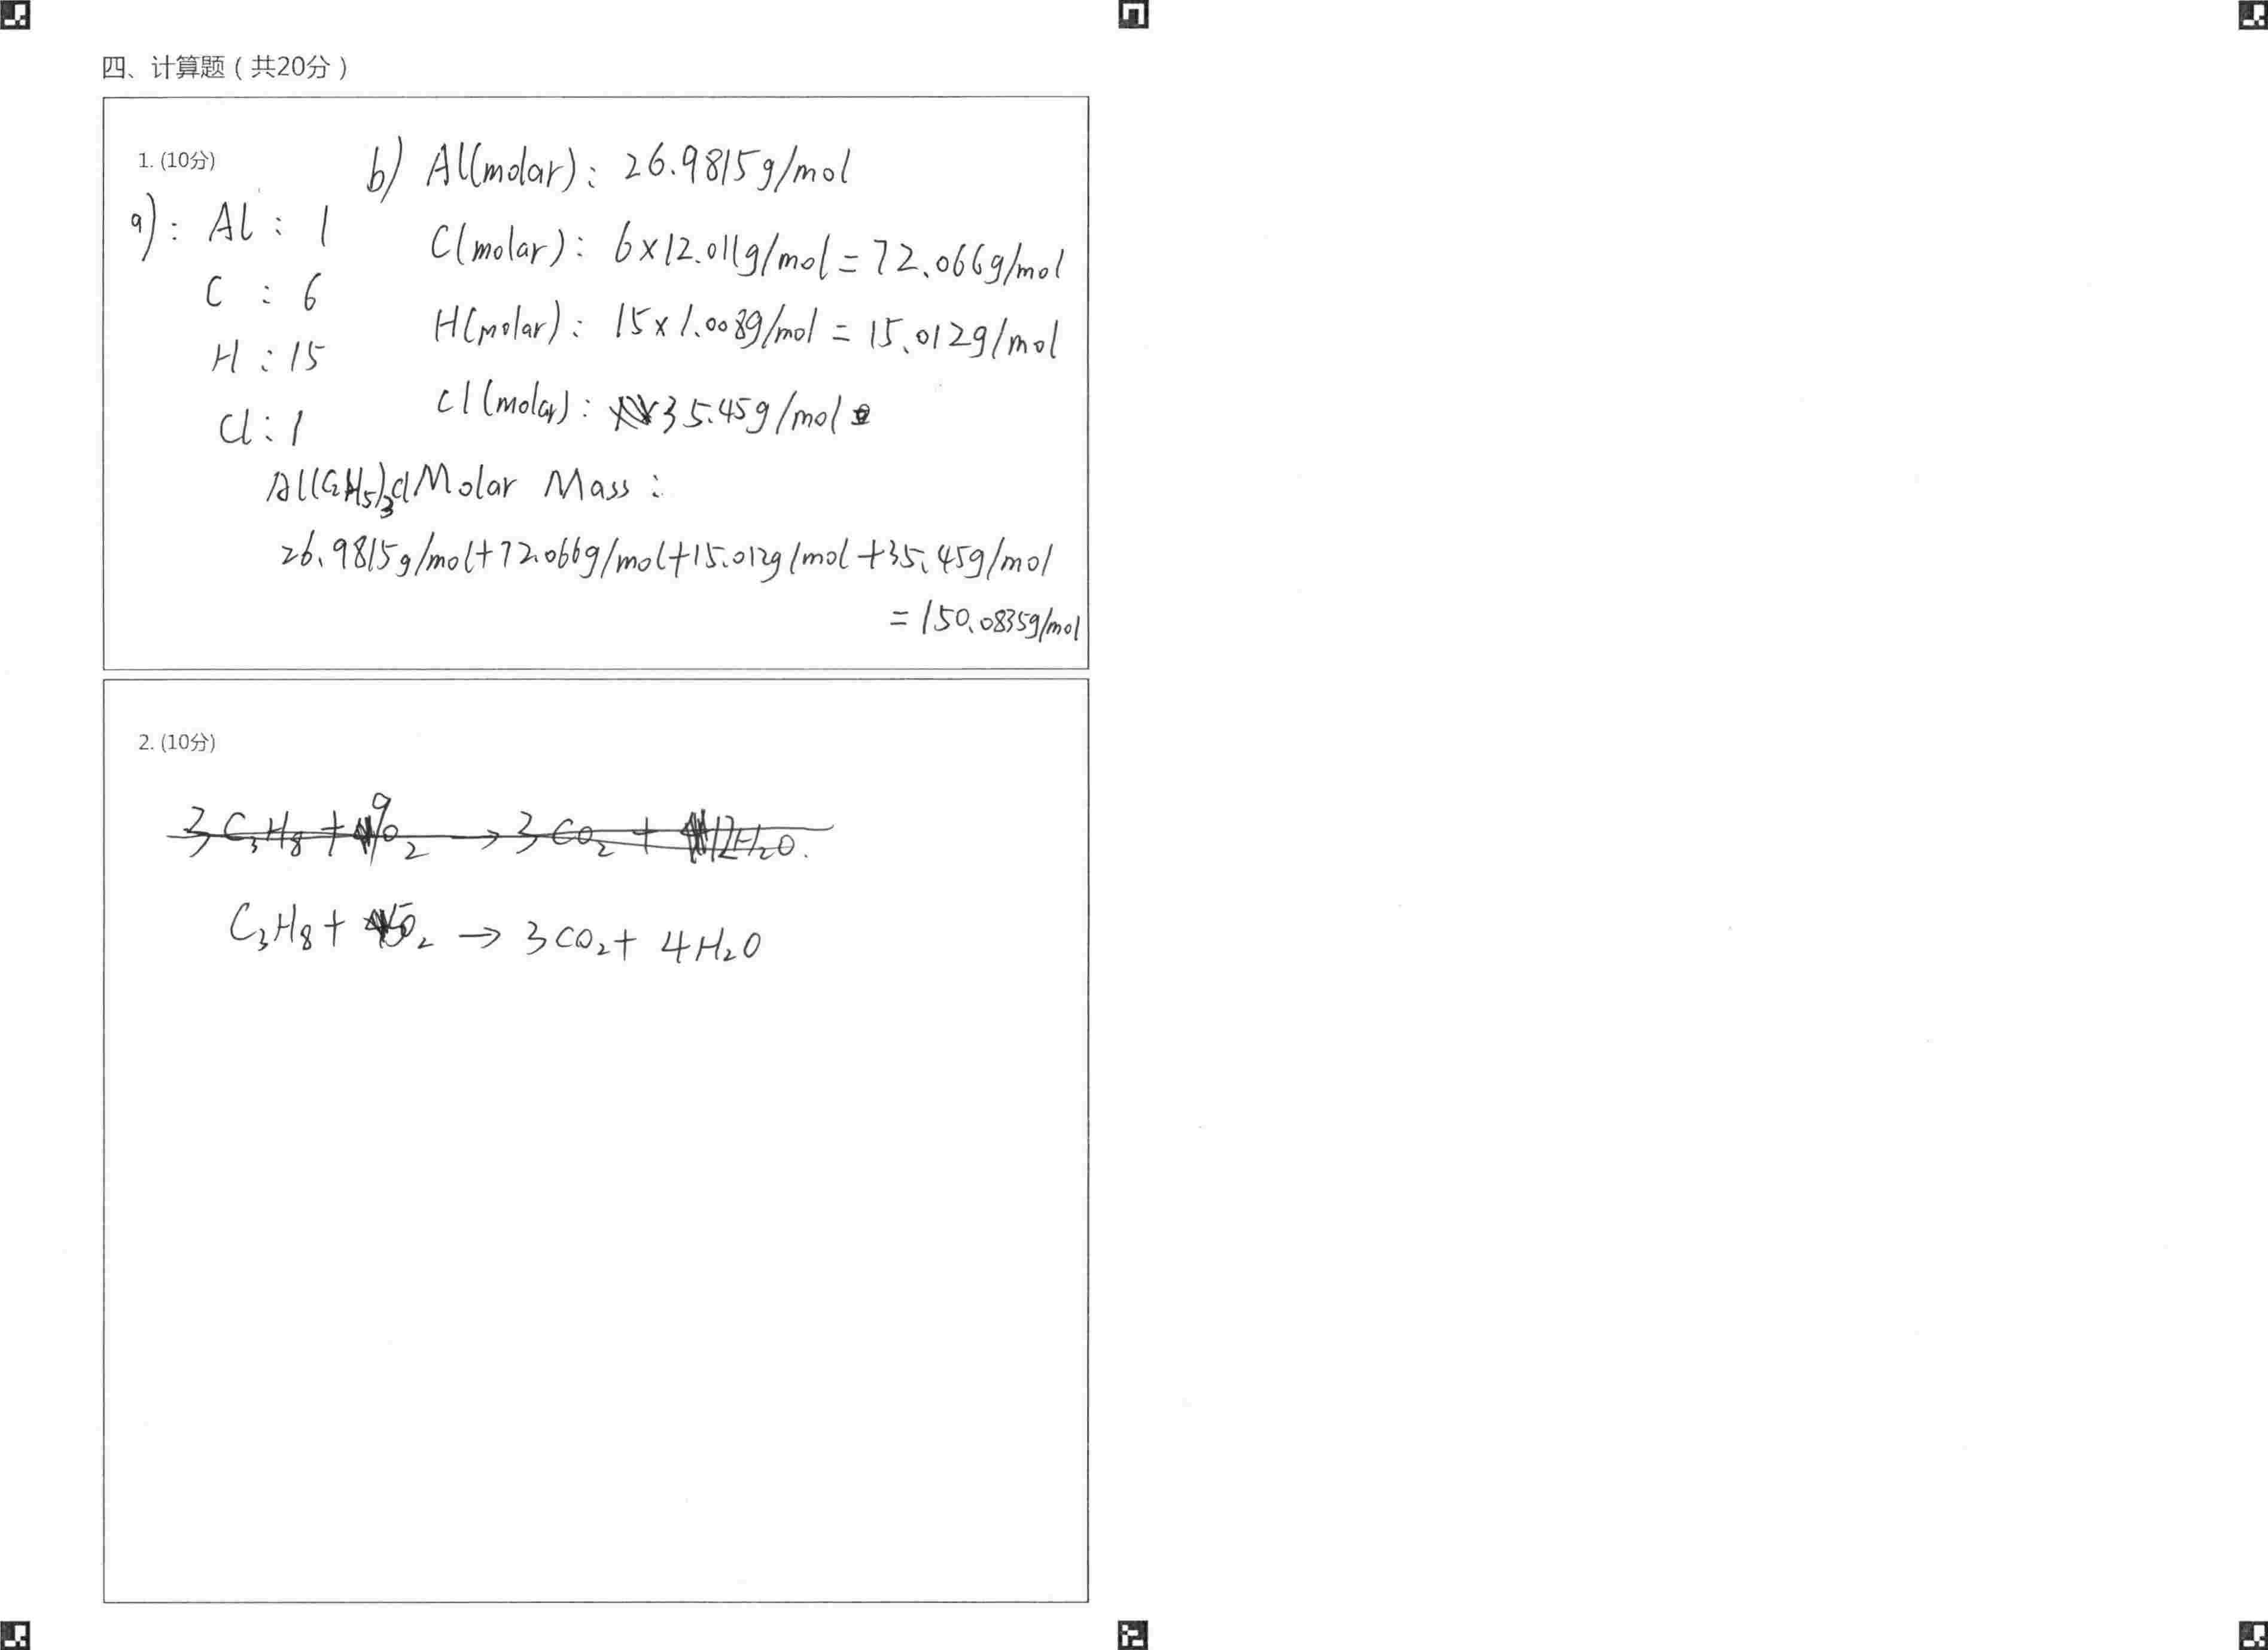 四、计算题（共20分）
1. (10分)
a): Al: 1
C: 6
H: 15
Cl: 1
b) Al(molar): 26.9815g/mol
C(molar): 6×12.011g/mol = 72.066g/mol
H(molar): 15×1.008g/mol = 15.012g/mol
Cl(molar): 35.45g/mol
Al(C₂H₅)₃Cl Molar Mass:
26.9815g/mol+72.066g/mol+15.012g/mol+35.45g/mol
= 150.0835g/mol
2. (10分)
3C₃H₈ + 9O₂ → 3CO₂ + 12H₂O.
C₃H₈ + 5O₂ → 3CO₂ + 4H₂O